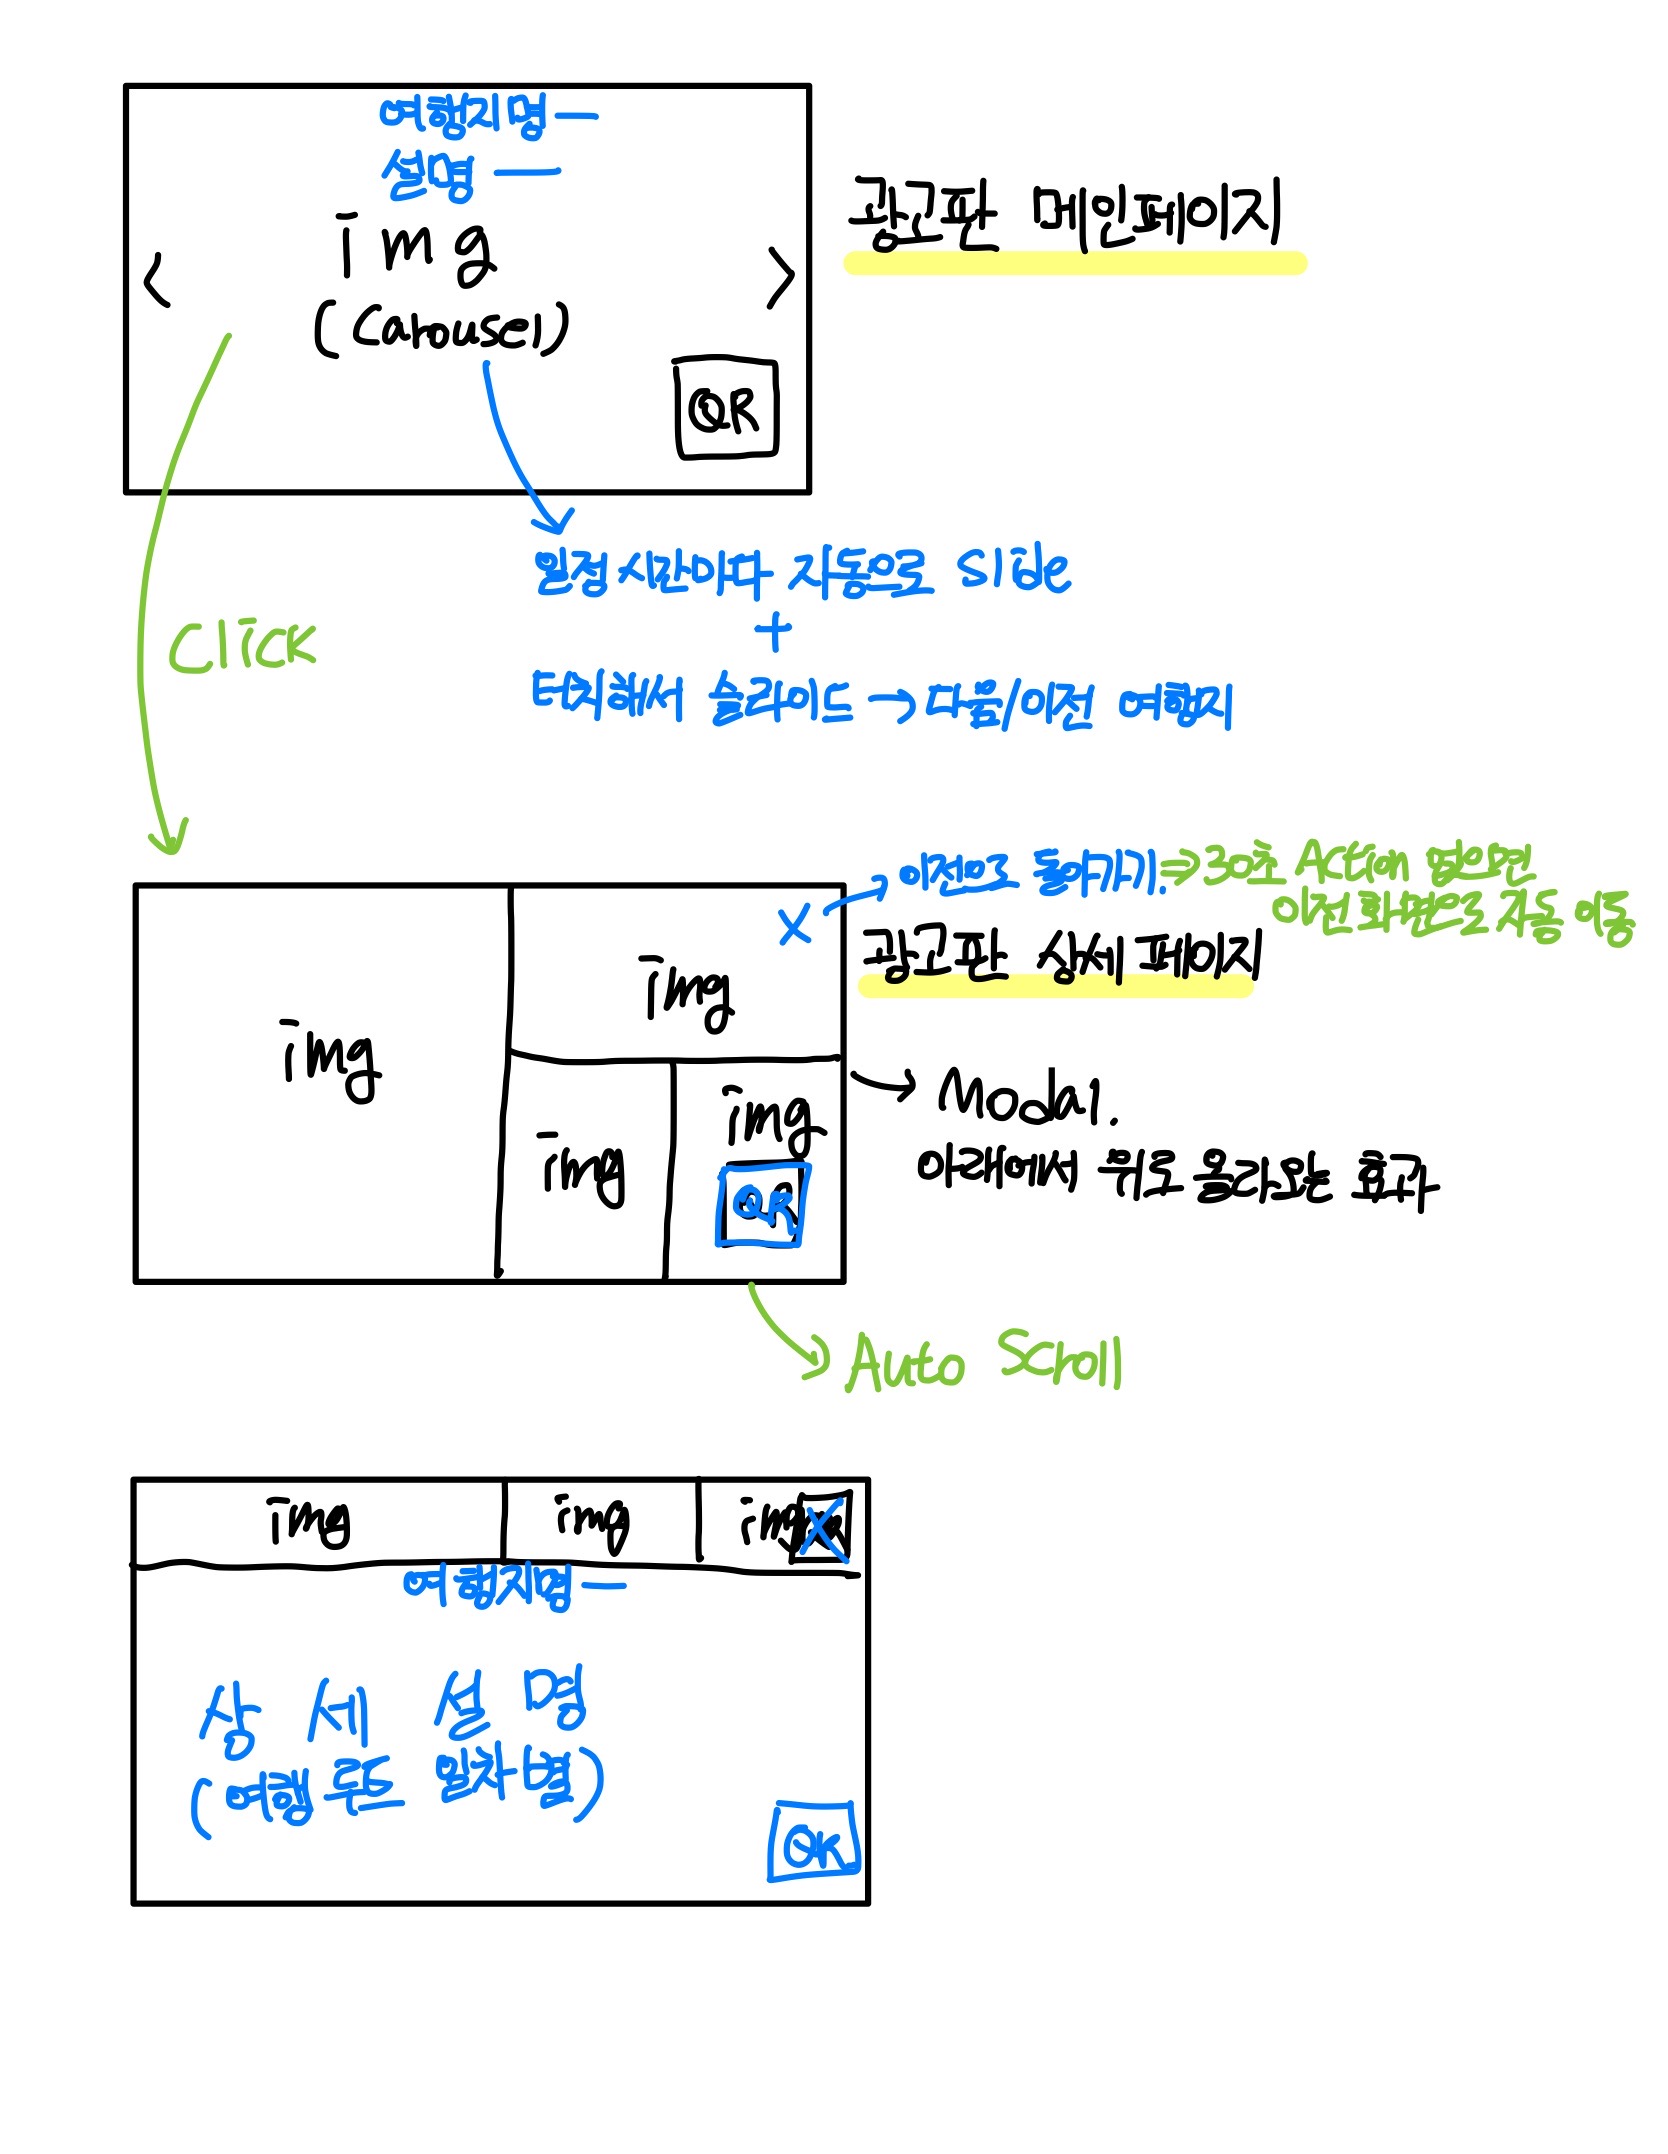 여행지명 —
설명 —
img
< >
(Carousel)
QR
광고판 메인페이지
일정 시간마다 자동으로 Slide
+
터치해서 슬라이드 → 다음/이전 여행지
Click
X → 이전으로 돌아가기. ⇒ 30초 Action 없으면
이전 화면으로 자동 이동
광고판 상세 페이지
img
img
img
img
QR
→ Modal.
아래에서 위로 올라오는 효과
Auto Scroll
img img img X
여행지명 —
상세 설명
(여행 루트 일차별)
QR